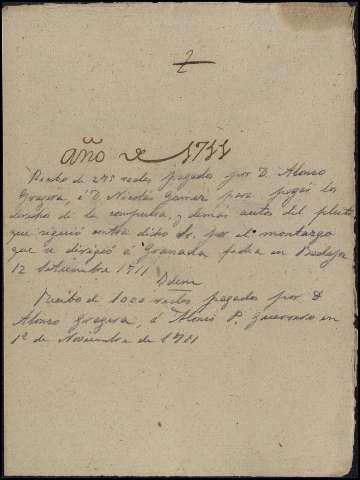 2
año de 1711
Recibo de 275 reales pagados por D. Alonso
Gragera, á D. Nicolás Gomez para pagar los
derecho de la compulsa, y demás autos del pleito
que siguió contra dicho Sr. por el montazgo
que se dirigió á Granada fecha en Badajoz
12 Setiembre 1711
Idem
Recibo de 1000 reales pagados por D
Alonso Gragera, á Alonso P. Guerrero en
1º de Noviembre de 1711